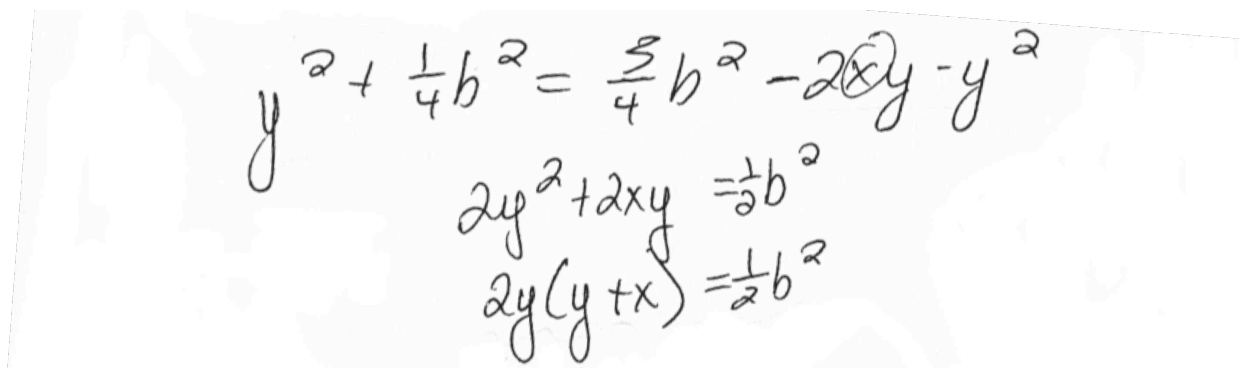 y² + 1/4 b² = 3/4 b² - 2xy - y²
2y² + 2xy = 1/2 b²
2y(y + x) = 1/2 b²